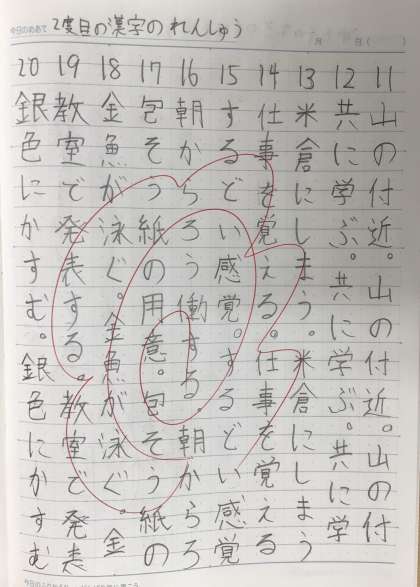 今日のめあて 2度目の漢字のれんしゅう
月 日( )
11 山の付近。山の付近。山の付
12 共に学ぶ。共に学ぶ。共に学
13 米倉にしまう。米倉にしまう
14 仕事を覚える。仕事を覚える
15 するどい感覚。するどい感覚
16 朝からろう働する。朝からろ
17 包そう紙の用意。包そう紙の
18 金魚が泳ぐ。金魚が泳ぐ。金
19 教室で発表する。教室で発表
20 銀色にかすむ。銀色にかすむ